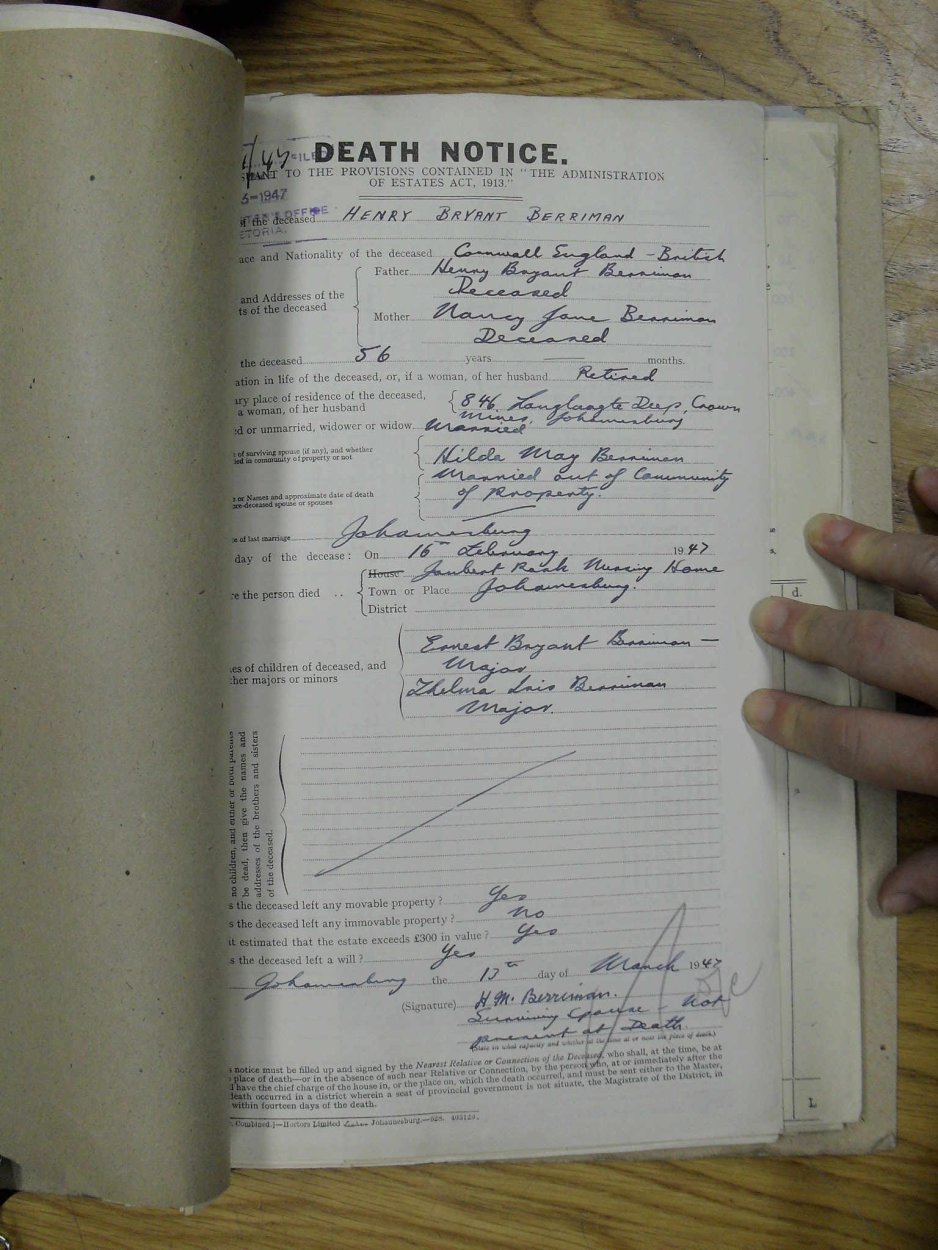 /47 FILED
DEATH NOTICE.
SUANT TO THE PROVISIONS CONTAINED IN "THE ADMINISTRATION
OF ESTATES ACT, 1913."
-1947
OFFICE
ETORIA.
of the deceased HENRY BRYANT BERRIMAN
ace and Nationality of the deceased Cornwall England - British
and Addresses of the
ts of the deceased
Father Henry Bryant Berriman
Deceased
Mother Nancy Jane Berriman
Deceased
the deceased 56 years months.
ation in life of the deceased, or, if a woman, of her husband Retired
ary place of residence of the deceased,
a woman, of her husband
846, Langlaagte Deep, Crown
Mines, Johannesburg
ed or unmarried, widower or widow Married
of surviving spouse (if any), and whether
ied in community of property or not
Hilda May Berriman
Married out of Community
of Property.
e or Names and approximate date of death
re-deceased spouse or spouses
ce of last marriage Johannesburg
day of the decease: On 16th February 1947
re the person died ..
House Joubert Park Nursing Home
Town or Place Johannesburg.
District
es of children of deceased, and
her majors or minors
Ernest Bryant Berriman —
Major
Thelma Lois Berriman
Major.
no children, and either or both parents
be dead, then give the names and
addresses of the brothers and sisters
of the deceased.
s the deceased left any movable property? Yes
s the deceased left any immovable property? No
it estimated that the estate exceeds £300 in value? Yes
s the deceased left a will? Yes
Johannesburg the 13th day of March 1947
(Signature) H.M. Berriman.
Surviving Spouse - not
present at Death.
(State in what capacity and whether at the time at or near the place of death.)
notice must be filled up and signed by the Nearest Relative or Connection of the Deceased, who shall, at the time, be at
place of death—or in the absence of such near Relative or Connection, by the person who, at or immediately after the
have the chief charge of the house in, or the place on, which the death occurred, and must be sent either to the Master,
death occurred in a district wherein a seat of provincial government is not situate, the Magistrate of the District, in
within fourteen days of the death.
Combined.]—Hortors Limited Johannesburg.—628. 403120.
d.
L